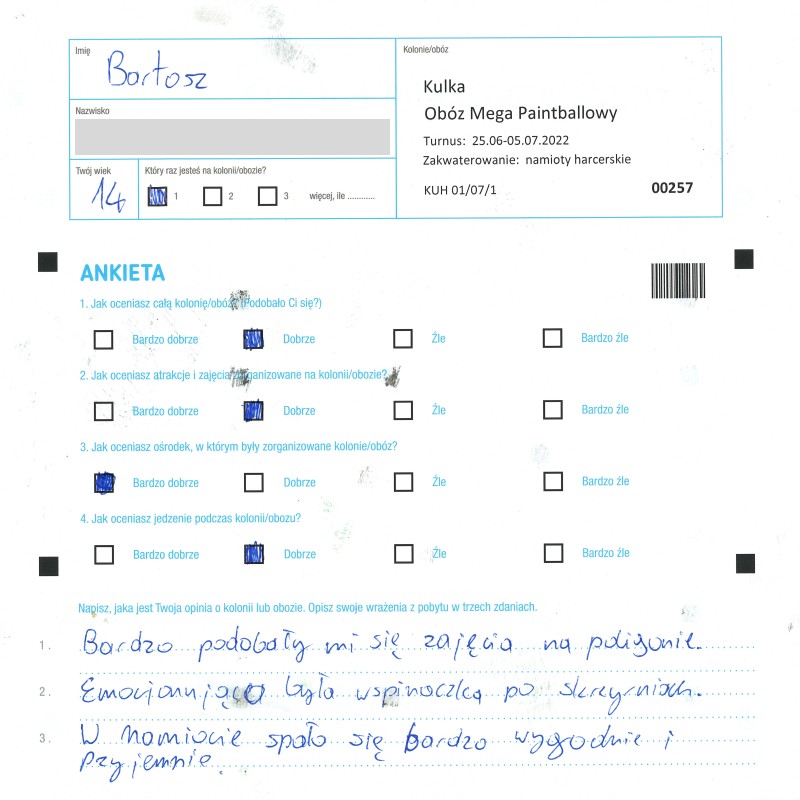 Imię
Bartosz
Nazwisko
Twój wiek
14
Który raz jesteś na kolonii/obozie?
1 2 3 więcej, ile ............
Kolonie/obóz
Kulka
Obóz Mega Paintballowy
Turnus: 25.06-05.07.2022
Zakwaterowanie: namioty harcerskie
KUH 01/07/1 00257
ANKIETA
1. Jak oceniasz całą kolonię/obóz? (Podobało Ci się?)
Bardzo dobrze Dobrze Źle Bardzo źle
2. Jak oceniasz atrakcje i zajęcia zorganizowane na kolonii/obozie?
Bardzo dobrze Dobrze Źle Bardzo źle
3. Jak oceniasz ośrodek, w którym były zorganizowane kolonie/obóz?
Bardzo dobrze Dobrze Źle Bardzo źle
4. Jak oceniasz jedzenie podczas kolonii/obozu?
Bardzo dobrze Dobrze Źle Bardzo źle
Napisz, jaka jest Twoja opinia o kolonii lub obozie. Opisz swoje wrażenia z pobytu w trzech zdaniach.
1. Bardzo podobały mi się zajęcia na poligonie.
2. Emocjonująca była wspinaczka po skrzyniach.
3. W namiocie spało się bardzo wygodnie i
przyjemnie.